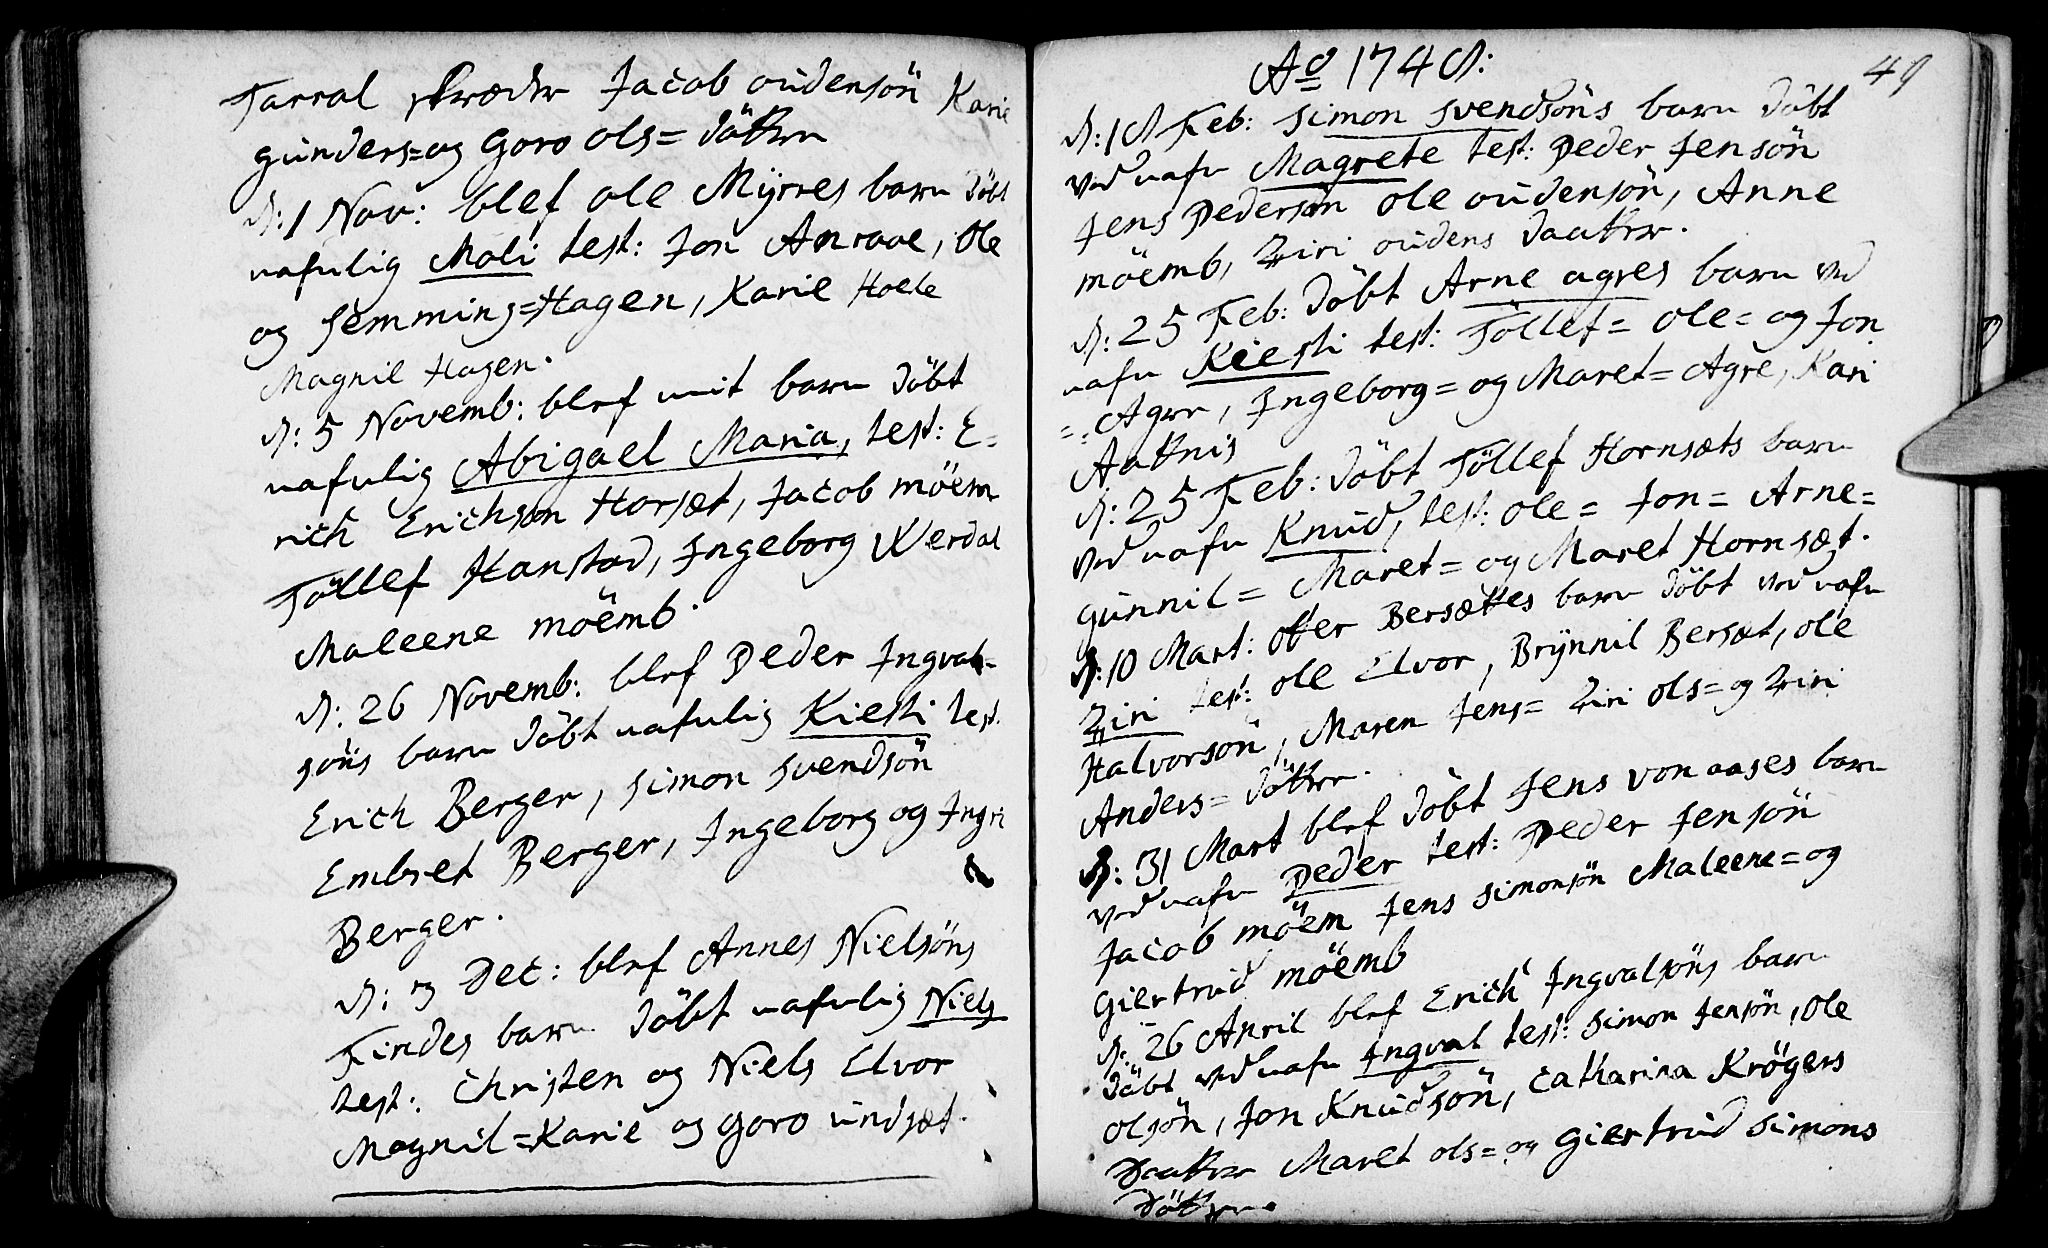 Tarral skræder Jacob oudensön Karie
gunders= og goro ols= döttrer
d: 1 Nov: blef ole Myrres barn döbt
nafnlig Mali test: Jon Anraae, Ole
og semming=Hagen, Karie Hoele
Magnil Hagen.
d: 5 Novemb: blef mit barn döbt
nafnlig Abigael Maria, test: E=
rich Erichsøn Horsæt, Jacob möem
Töllef Hanstad, Ingeborg Werdal
Maleene möemb.
d: 26 Novemb: blef Peder Ingval=
söns barn döbt nafnlig Kiesti test.
Erich Berger, simon svendsön
Embret Berger, Ingeborg og Ingri
Berger.
d: 3 Dec: blef Annes Nielsöns
Findes barn döbt nafnlig Niels
test: Christen og Niels Elvor
Magnil=Karie og goro undsæt.
49
Ao 1748:
d: 18 Feb: simon svendsöns barn döbt
ved nafn Magrete test: Peder Jensön
Jens Pedersøn ole oudensön, Anne
möemb, Ziri oudens daatter.
d: 25 Feb: döbt Arne agres barn ved
nafn Kiesti test: Töllef= ole= og Jon
=: Agre, Ingeborg= og Maret= Agre, Kari
Aattnis
d: 25 Feb: döbt Töllef Hornsæts barn
ved nafn Knud, test: ole= Jon= Arne=
gunnil= Maret= og Maret Hornsæt.
d: 10 Mart: otter Bersættes barn döbt ved nafn
Ziri test: ole Elvor, Brynnil Bersæt, ole
Halvorsön, Maren Jens= Ziri ols= og Ziri
Anders= döttrer.
d: 31 Mart blef döbt Jens von aases barn
ved nafn Peder test: Peder Jensön
Jacob möem Jens simonsön Maleene= og
giertrud möemb
d: 26 April blef Erich Ingvalsöns barn
döbt ved nafn Ingval test: simon Jensön, Ole
olsön, Jon Knudsön, Catharina Krögers
Daatter Maret ols= og giertrud simons
döttrer.